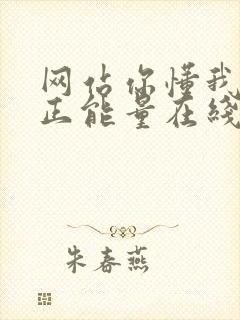 网站你懂我
正能量在线
朱春燕